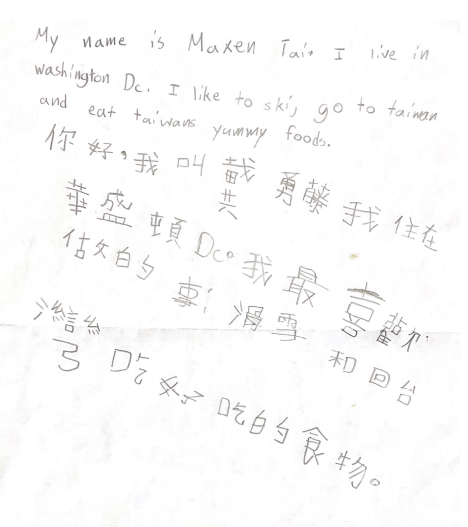 My name is Maxen Tai. I live in
washington Dc. I like to ski, go to taiwan
and eat taiwans yummy foods.
你好,我叫戴勇藤我住在
華盛頓Dc。我最喜歡
做的事:滑雪和回台
灣吃好吃的食物。